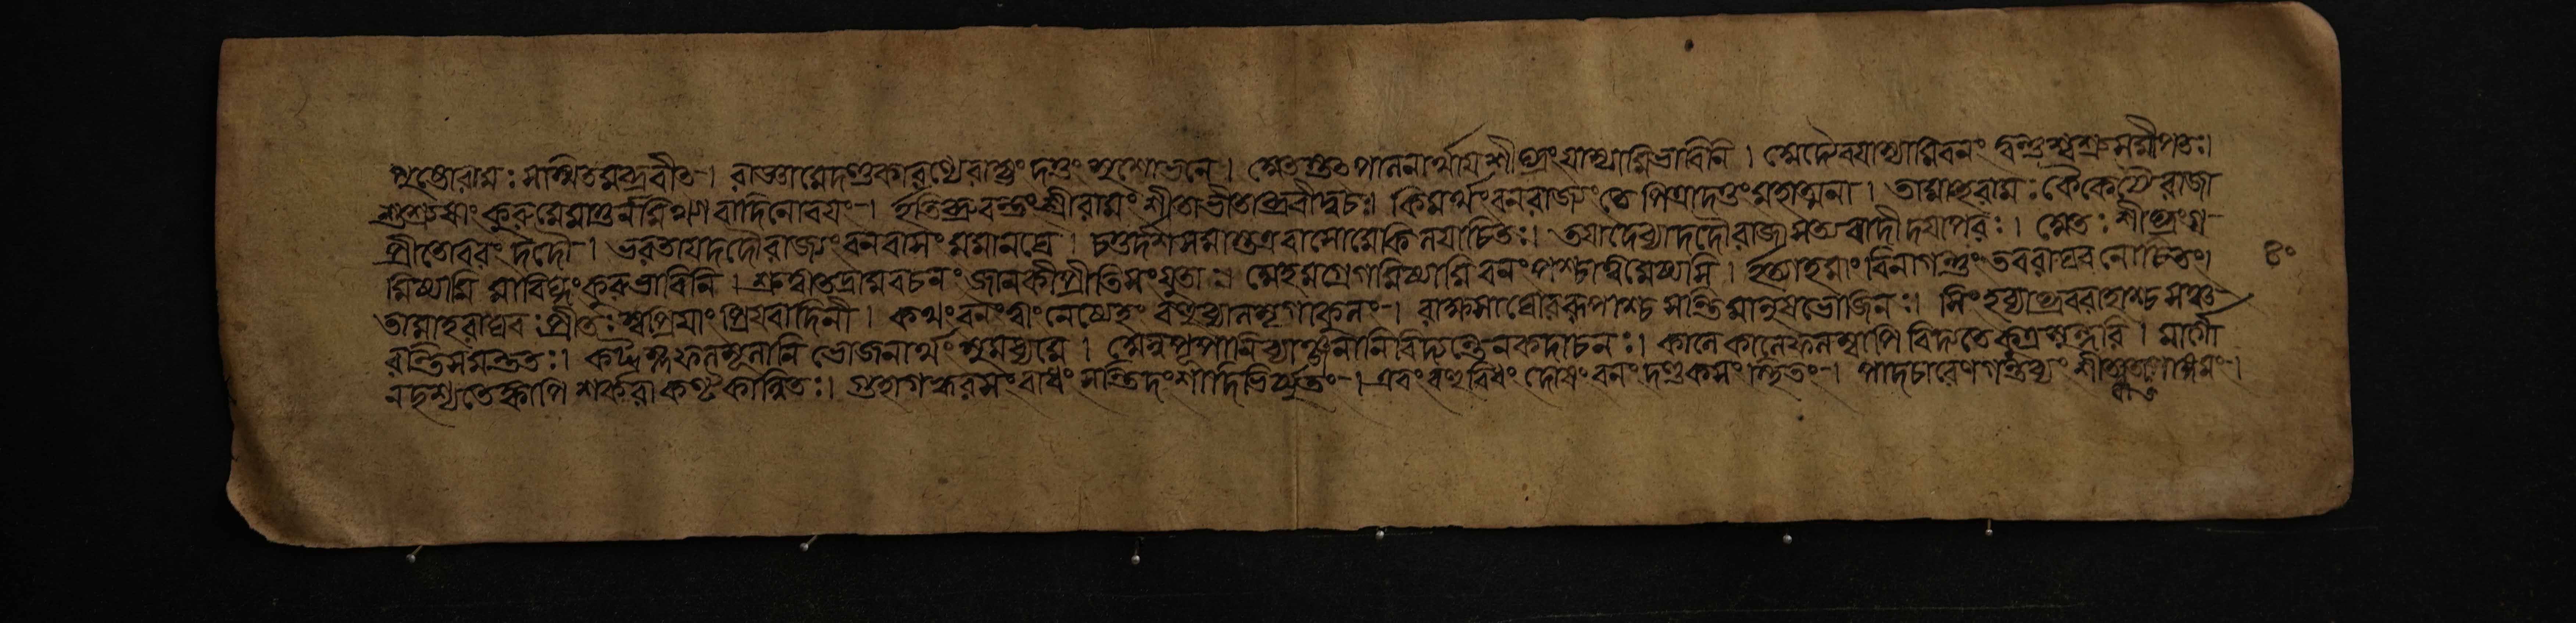 পৃষ্টোরামঃ সস্মিতমব্রবীত । রাজ্ঞামেদণ্ডকারণ্যেরাজ্যং দত্তং সুশোভনে । অতস্তৎপালনার্থায় শীঘ্রংযাস্যামিভাবিনি । অদ্যৈবযাস্যামিবনং ত্বন্তুশ্বশ্রুসমীপতঃ।
শুশ্রূষাং কুরুমেমাতুর্নমিথ্যাবাদিনোবয়ং । ইতিব্রুবন্তংশ্রীরামং সীতাভীতাব্রবীদ্বচঃ। কিমর্থংবনরাজ্যংতে পিত্রাদত্তংমহাত্মনা । তামাহরামঃ কৈকেয্যৈরাজা
প্রীতোবরং দদৌ । ভরতায়দদৌরাজ্যংবনবাসংমমানঘে । চতুর্দশসমাস্তত্রবাসোমেকিলযাচিতঃ। তয়াদেব্যাদদৌরাজাসত্যবাদীদয়াপরঃ। অতঃ শীঘ্রংগ
মিষ্যামি মাবিঘ্নংকুরুভাবিনি । শ্রুত্বাতদ্রামবচনংজানকীপ্রীতিসংযুতা । অহমগ্রেগমিষ্যামিবনং পশ্চাত্ত্বমেষ্যসি । ইত্যাহমাং বিনাগন্তুং তবরাঘবনোচিতং।
তামাহরাঘবঃপ্রীতঃস্বপ্রিয়াং প্রিয়বাদিনী । কথংবনংত্বাংনেষ্যেহং বহুব্যালমৃগাকুলং । রাক্ষসাঘোররূপাশ্চসন্তিমানুষভোজিনঃ। সিংহব্যাঘ্রবরাহাশ্চসঞ্চ
রন্তিসমন্ততঃ। কট্বম্লফলমূলানি ভোজনার্থংসুমধ্যমে । অপূপানিব্যঞ্জনানিবিদ্যন্তেনকদাচনঃ। কালেকালেফলম্বাপি বিদ্যতেকুত্রসুন্দরি । মার্গো
নদৃশ্যতেক্বাপি শর্করাকণ্টকান্বিতঃ। গুহাগহ্বরসংবাধং দংশাদিভির্যুতং । এবংবহুবিধং দোষংবনং দণ্ডক পাদচারেণগন্তব্যং
৪০